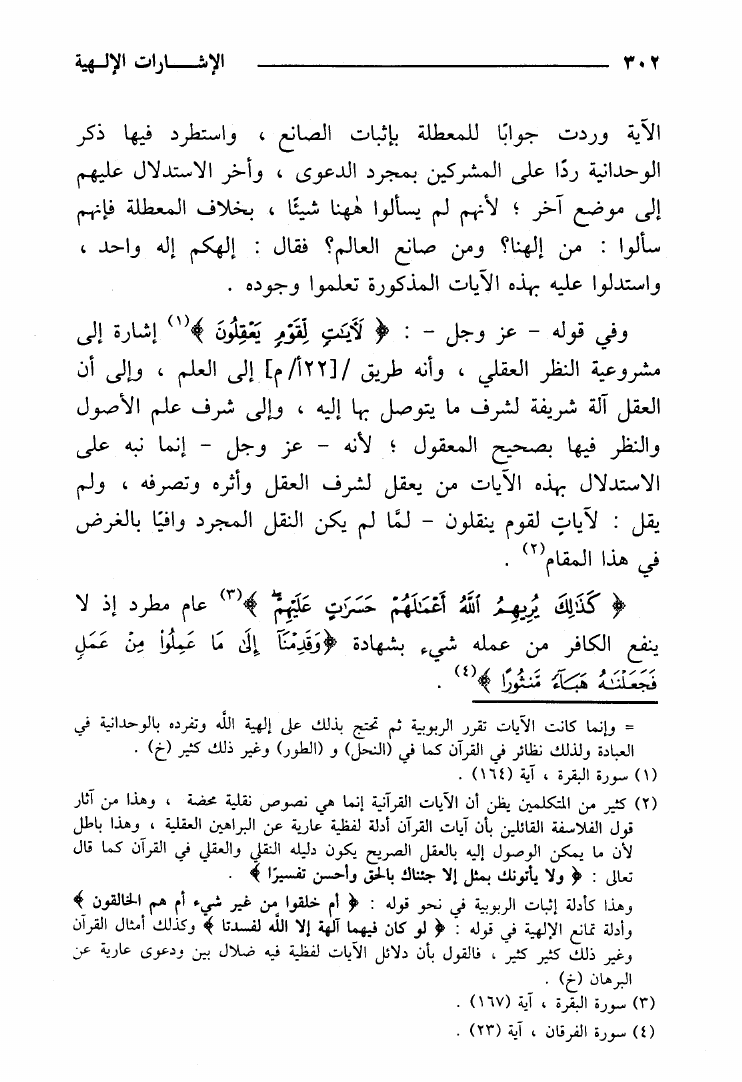 ٣٠٢ الإشـــــارات الإلـــهية
الآية وردت جوابًا للمعطلة بإثبات الصانع ، واستطرد فيها ذكر
الوحدانية ردًا على المشركين بمجرد الدعوى ، وأخر الاستدلال عليهم
إلى موضع آخر ؛ لأنهم لم يسألوا ههنا شيئًا ، بخلاف المعطلة فإنهم
سألوا : من إلهنا؟ ومن صانع العالم؟ فقال : إلهكم إله واحد ،
واستدلوا عليه بهذه الآيات المذكورة تعلموا وجوده .
وفي قوله – عز وجل – : ﴿ لَآيَٰتٍ لِّقَوْمٍ يَعْقِلُونَ ﴾(١) إشارة إلى
مشروعية النظر العقلي ، وأنه طريق /[٢٢أ/م] إلى العلم ، وإلى أن
العقل آلة شريفة لشرف ما يتوصل بها إليه ، وإلى شرف علم الأصول
والنظر فيها بصحيح المعقول ؛ لأنه – عز وجل – إنما نبه على
الاستدلال بهذه الآيات من يعقل لشرف العقل وأثره وتصرفه ، ولم
يقل : لآياتٍ لقوم ينقلون – لمَّا لم يكن النقل المجرد وافيًا بالغرض
في هذا المقام(٢) .
﴿ كَذَٰلِكَ يُرِيهِمُ ٱللَّهُ أَعْمَٰلَهُمْ حَسَرَٰتٍ عَلَيْهِمْ ۖ ﴾(٣) عام مطرد إذ لا
ينفع الكافر من عمله شيء بشهادة ﴿وَقَدِمْنَآ إِلَىٰ مَا عَمِلُوا۟ مِنْ عَمَلٍ
فَجَعَلْنَٰهُ هَبَآءً مَّنثُورًا ﴾(٤) .
= وإنما كانت الآيات تقرر الربوبية ثم تحتج بذلك على إلهية اللَّه وتفرده بالوحدانية في
العبادة ولذلك نظائر في القرآن كما في (النحل) و (الطور) وغير ذلك كثير (خ) .
(١) سورة البقرة ، آية (١٦٤) .
(٢) كثير من المتكلمين يظن أن الآيات القرآنية إنما هي نصوص نقلية محضة ، وهذا من آثار
قول الفلاسفة القائلين بأن آيات القرآن أدلة لفظية عارية عن البراهين العقلية ، وهذا باطل
لأن ما يمكن الوصول إليه بالعقل الصريح يكون دليله النقلي والعقلي في القرآن كما قال
تعالى : ﴿ ولا يأتونك بمثل إلا جئناك بالحق وأحسن تفسيرًا ﴾ .
وهذا كأدلة إثبات الربوبية في نحو قوله : ﴿ أم خلقوا من غير شيء أم هم الخالقون ﴾
وأدلة تمانع الإلهية في قوله : ﴿ لو كان فيهما آلهة إلا اللَّه لفسدتا ﴾ وكذلك أمثال القرآن
وغير ذلك كثير كثير ، فالقول بأن دلائل الآيات لفظية فيه ضلال بين ودعوى عارية عن
البرهان (خ) .
(٣) سورة البقرة ، آية (١٦٧) .
(٤) سورة الفرقان ، آية (٢٣) .